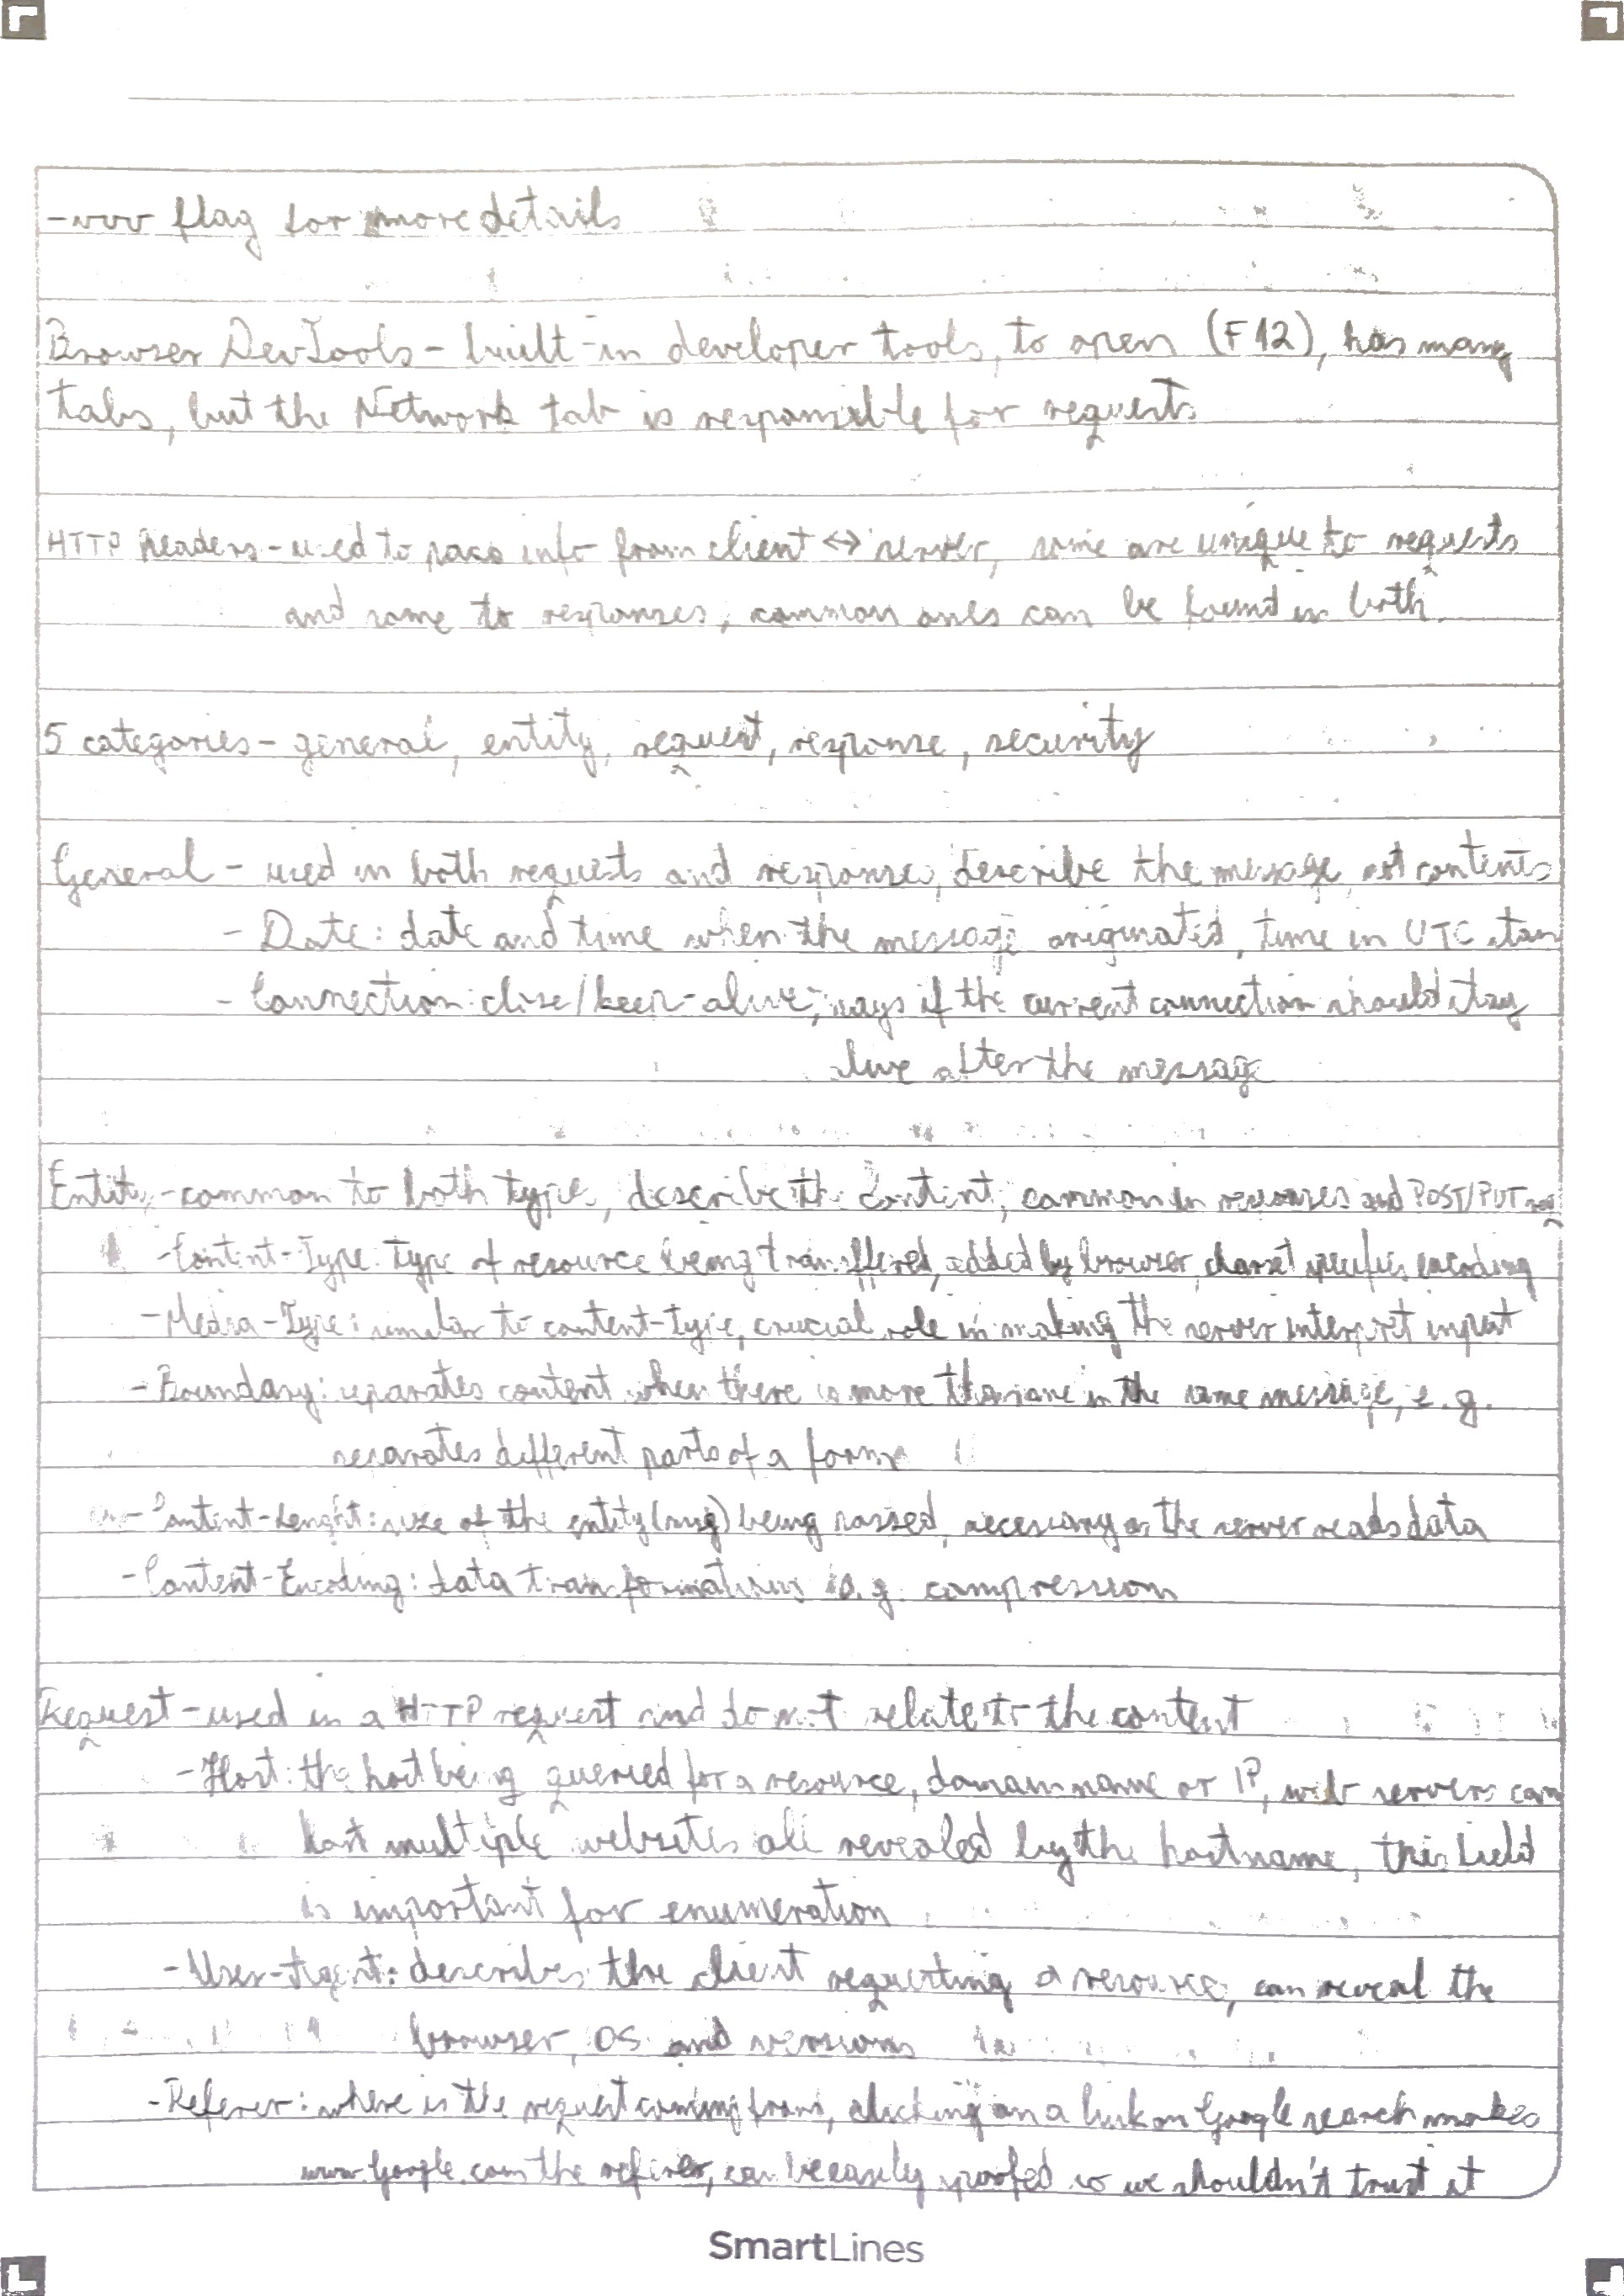 -vvv flag for more details
Browser DevTools - built-in developer tools, to open (F12), has many
tabs, but the Network tab is responsible for requests
HTTP headers - used to pass info from client ↔ server, some are unique to requests
and some to responses, common ones can be found in both
5 categories - general, entity, request, response, security
General - used in both requests and responses, describe the message, not contents
- Date: date and time when the message originated, time in UTC stan
- Connection: close/keep-alive; says if the current connection should stay
alive after the message
Entity - common to both types, describe the content, common in responses and POST/PUT req
- Content-Type: type of resource being transferred, added by browser, charset specifies encoding
- Media-Type: similar to content-type, crucial role in making the server interpret input
- Boundary: separates content when there is more than one in the same message, e.g.
separates different parts of a form
- Content-Lenght: size of the entity (msg) being passed, necessary as the server reads data
- Content-Encoding: data transformations e.g. compression
Request - used in a HTTP request and do not relate to the content
- Host: the host being queried for a resource, domain name or IP, web servers can
host multiple websites all revealed by the hostname, this field
is important for enumeration
- User-Agent: describes the client requesting a resource, can reveal the
browser, OS and versions
- Referer: where is the request coming from, clicking on a link on Google search makes
www.google.com the referer, can be easily spoofed so we shouldn't trust it
SmartLines